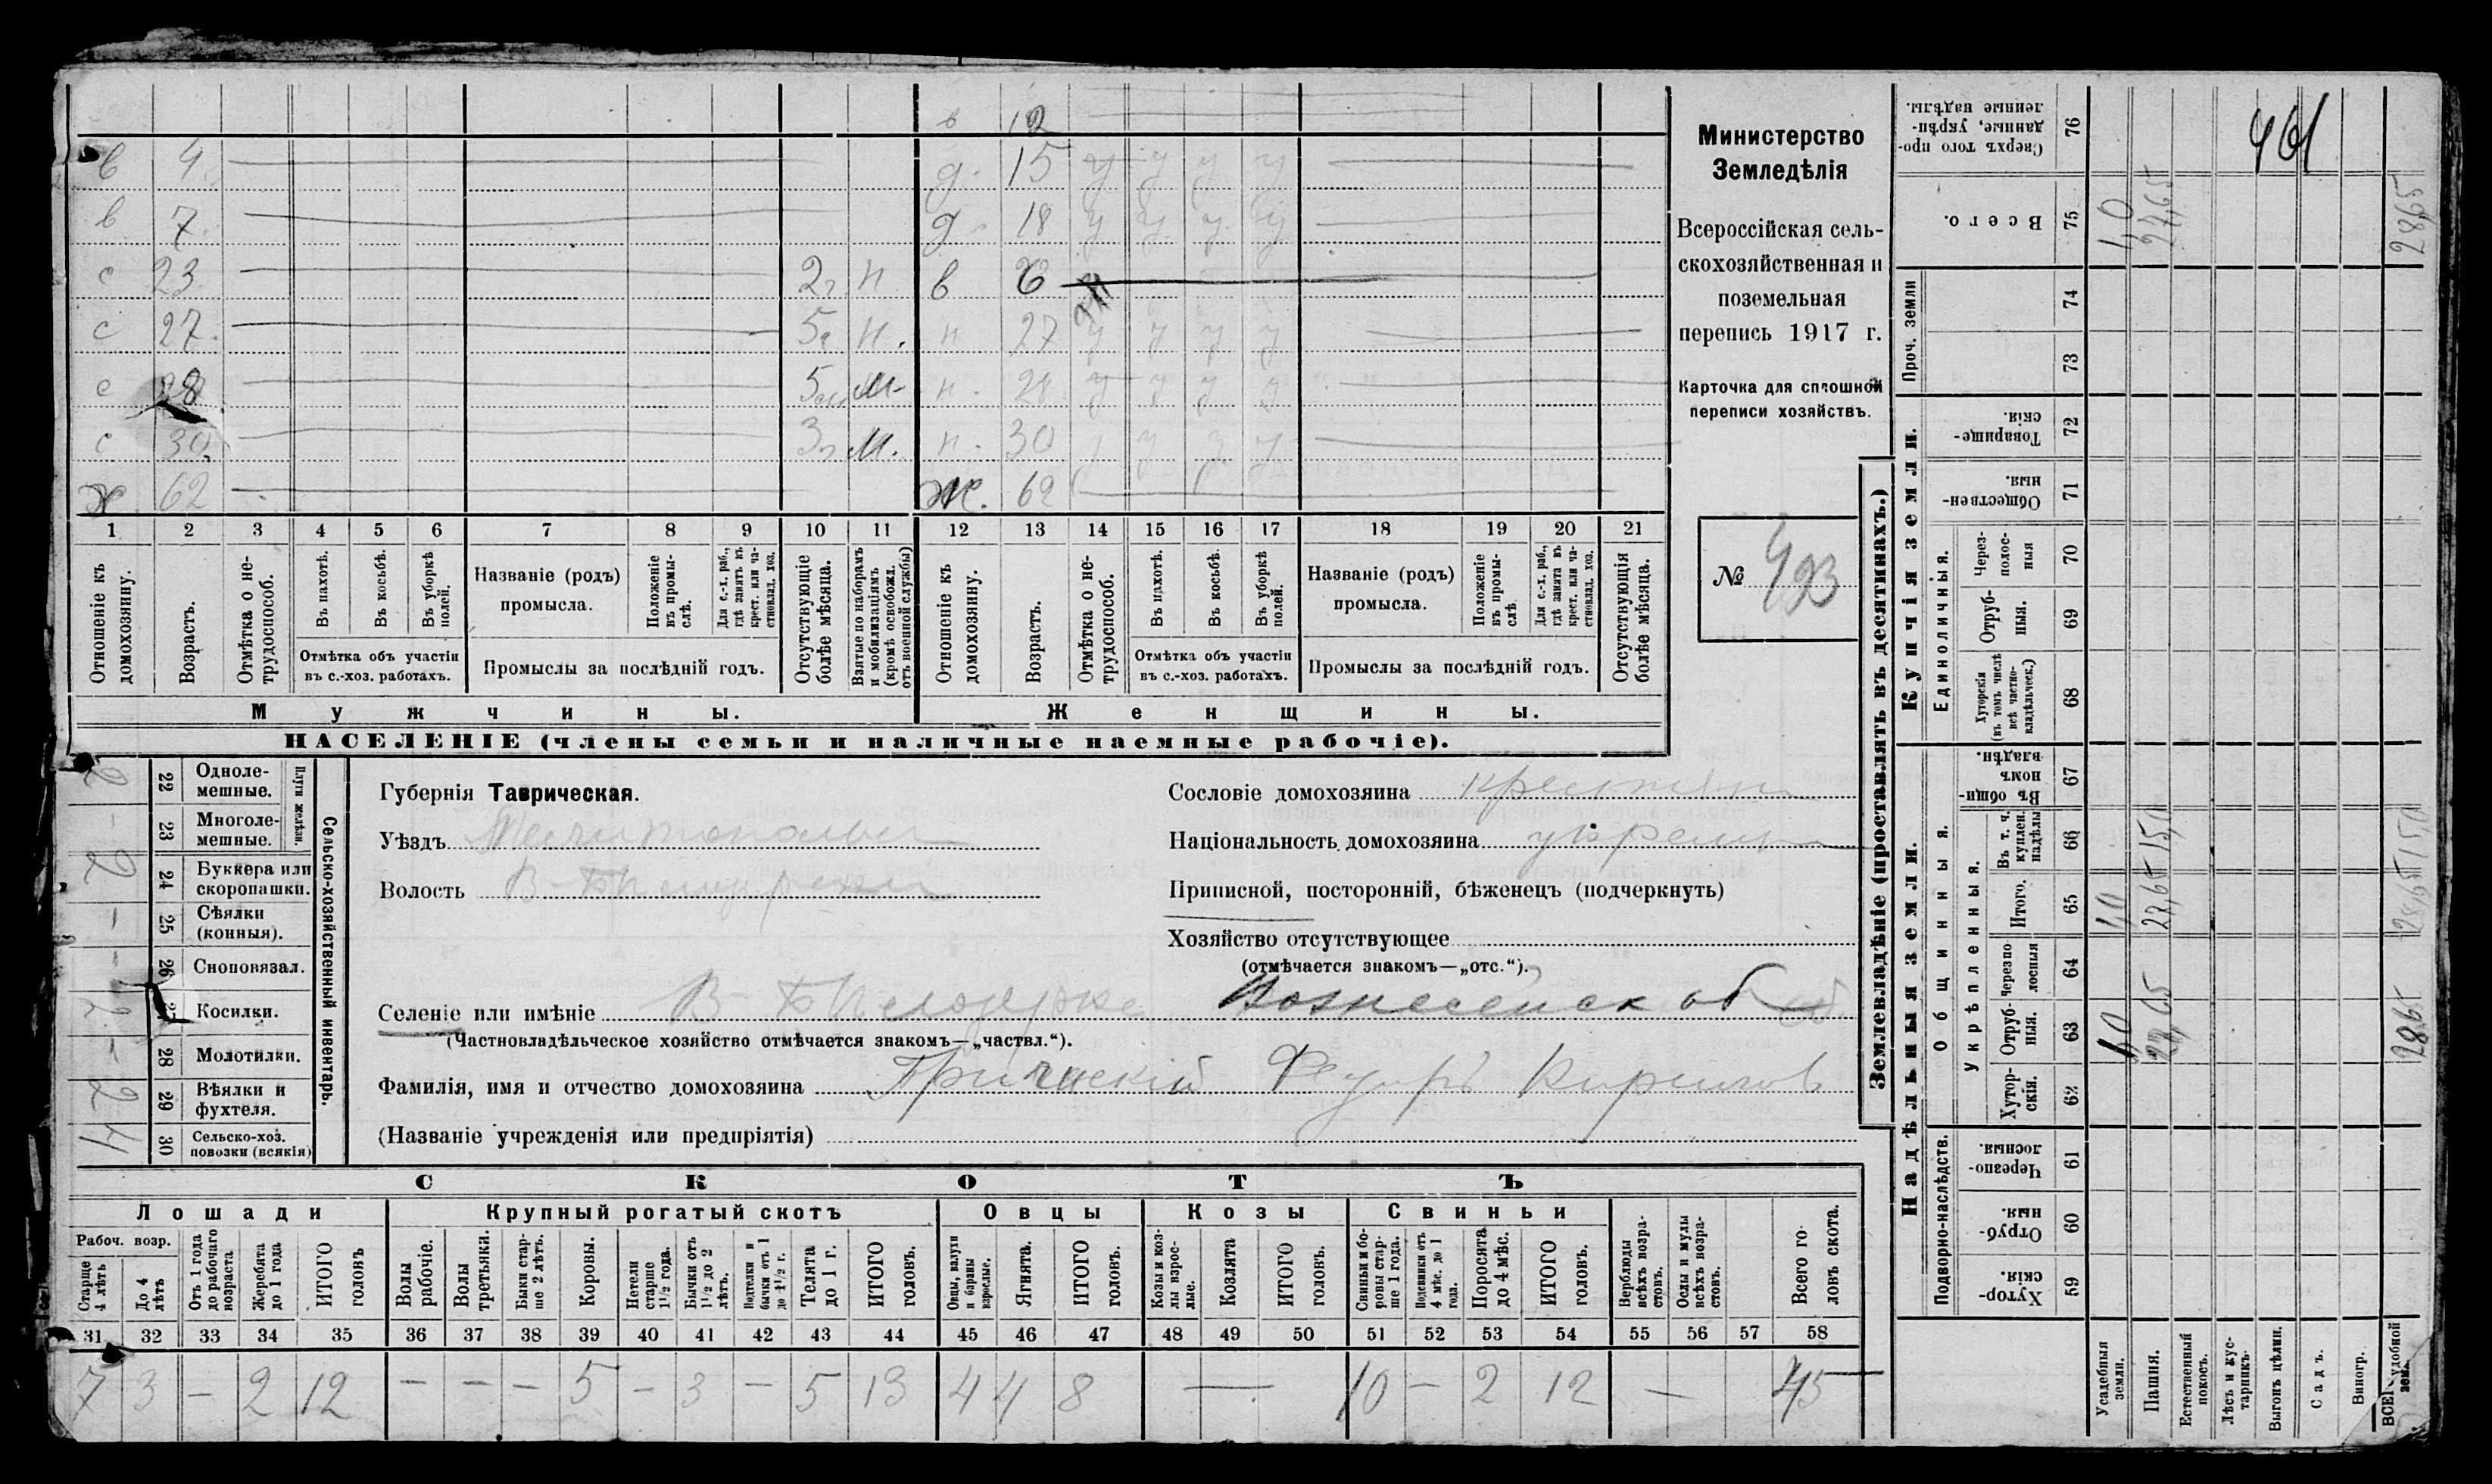 в 12
в 4 д. 15 у у у у
в 7 д 18 у у у у
с 23 2г н в 6
с 27 5г н. н 27 у у у у
с 28 м. н. 28 у у у у
с 30 3г м. н. 30 у у у
ж 62 ж. 62
1 2 3 4 5 6 7 8 9 10 11 12 13 14 15 16 17 18 19 20 21
Отношеніе къ домохозяину.
Возрастъ.
Отмѣтка о не-трудоспособ.
Въ пахотѣ.
Въ косьбѣ.
Въ уборкѣ полей.
Отмѣтка объ участіи
въ с.-хоз. работахъ.
Названіе (родъ)
промысла.
Положеніе въ промы-слѣ.
Для с.-х. раб., гдѣ занятъ въ крест. или ча-стновлад. хоз.
Промыслы за послѣдній годъ.
Отсутствующіе болѣе мѣсяца.
Взятые по наборамъ и мобилизаціямъ (кромѣ освобожд. отъ военной службы)
Отношеніе къ домохозяину.
Возрастъ.
Отмѣтка о не-трудоспособ.
Въ пахотѣ.
Въ косьбѣ.
Въ уборкѣ полей.
Отмѣтка объ участіи
въ с.-хоз. работахъ.
Названіе (родъ)
промысла.
Положеніе въ промы-слѣ
Для с.-х. раб., гдѣ занята въ крест. или ча-стновлад. хоз.
Промыслы за послѣдній годъ.
Отсутствующія болѣе мѣсяца.
Мужчины.
Женщины.
НАСЕЛЕНІЕ (члены семьи и наличные наемные рабочіе).
Министерство
Земледѣлія
Всероссійская сель-
скохозяйственная и
поземельная
перепись 1917 г.
Карточка для сплошной
переписи хозяйствъ.
№ 493
Сельско-хозяйственный инвентарь.
Плуги желѣзн.
22 Одноле-мешные. 2
23 Многоле-мешные. -
24 Буккера или скоропашки. 2
25 Сѣялки (конныя). -
26 Сноповязал. -
27 Косилки. 2
28 Молотилки. -
29 Вѣялки и фухтеля. 2
30 Сельско-хоз. повозки (всякія) 4
Губернія Таврическая.
Уѣздъ Мелитопольскі
Волость В-Бѣлозерская
Сословіе домохозяина крестьян
Національность домохозяина украин
Приписной, посторонній, бѣженецъ (подчеркнуть)
Хозяйство отсутствующее
(отмѣчается знакомъ—„отс.“).
Селеніе или имѣніе В-Бѣлозерка Вознесенск об
(Частновладѣльческое хозяйство отмѣчается знакомъ—„частвл.“).
Фамилія, имя и отчество домохозяина Федоръ Кирилов
(Названіе учрежденія или предпріятія)
СКОТЪ
Лошади Крупный рогатый скотъ Овцы Козы Свиньи
Рабоч. возр.
Старше 4 лѣтъ
До 4 лѣтъ
Отъ 1 года до рабочаго возраста
Жеребята до 1 года
ИТОГО головъ
Волы рабочіе.
Волы третьяки.
Быки стар-ше 2 лѣтъ.
Коровы.
Нетели старше 1½ года.
Бычки отъ 1½ до 2 лѣтъ.
Подтелки и бычки отъ 1 до 1½ г.
Телята до 1 г.
ИТОГО головъ.
Овцы, валухи и бараны взрослые.
Ягнята.
ИТОГО головъ.
Козы и коз-лы взрос-лые.
Козлята
ИТОГО головъ.
Свиньи и бо-ровы стар-ше 1 года.
Подсвинки отъ 4 мѣс. до 1 года.
Поросята до 4 мѣс.
ИТОГО головъ.
Верблюды всѣхъ возра-стовъ.
Ослы и мулы всѣхъ возра-стовъ.
Всего го-ловъ скота.
31 32 33 34 35 36 37 38 39 40 41 42 43 44 45 46 47 48 49 50 51 52 53 54 55 56 57 58
7 3 - 2 12 - - - 5 - 3 - 5 13 4 4 8 — 10 - 2 12 — 45
Землевладѣніе (проставлять въ десятинахъ.)
Купчія земли.
Надѣльныя земли.
Сверхъ того про-данные, укрѣп-ленные надѣлы. 76
Всего. 75
Проч. земли 74 73
Товарище-скія. 72
Обществен-ныя. 71
Единоличныя.
Через-полос-ныя 70
Отруб-ныя. 69
Хуторскія (въ томъ числѣ всѣ частно-владѣльческ.) 68
Общинныя.
Въ общи-номъ владѣн. 67
Укрѣпленныя.
Въ т. ч. куплен. надѣлы 66
Итого. 65
Черезпо-лосныя 64
Отруб-ныя. 63
Хутор-скія. 62
Подворно-наслѣдств.
Черезпо-лосныя. 61
Отруб-ныя. 60
Хутор-скія. 59
Усадебныя земли.
Пашня.
Естественный покосъ.
Лѣсъ и кус-тарникъ.
Выгонъ цѣлин.
Садъ.
Виногр.
ВСЕГО удобной зем.
1,0 27,65 28,65
15,0 15,0
1,0 27,65 28,65
28,65